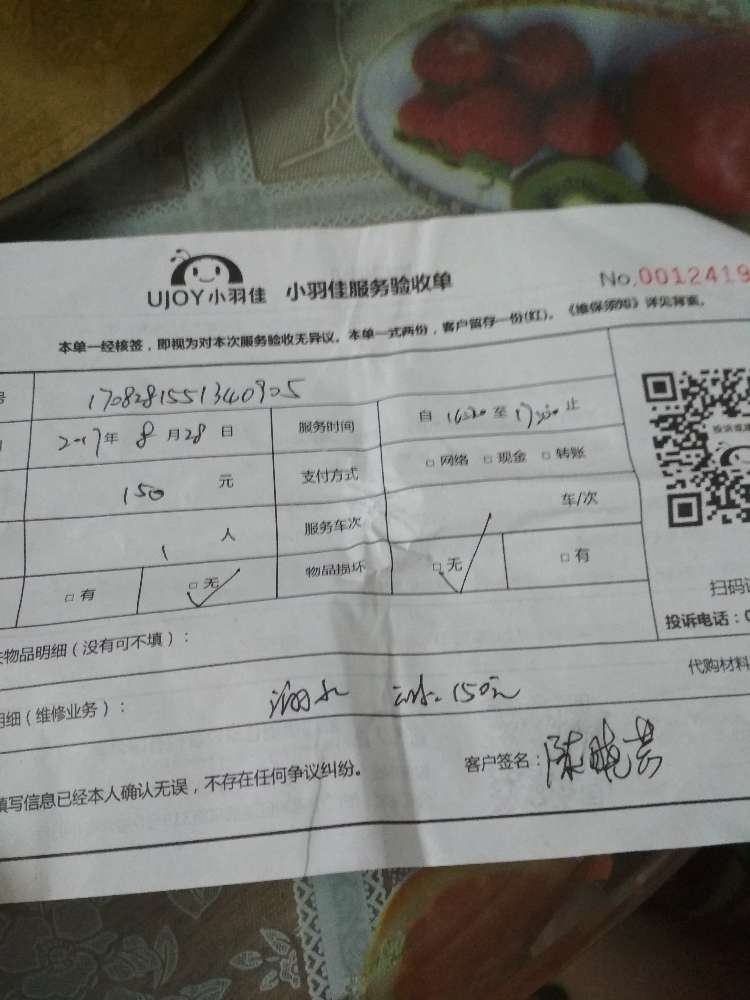 UJOY小羽佳 小羽佳服务验收单 No.0012419
本单一经核签，即视为对本次服务验收无异议。本单一式两份，客户留存一份(红)。《维保须知》详见背面。
号 1708281551340905
2017年 8月28日 服务时间 自 16:20 至 17:30 止
150 元 支付方式 □网络 □现金 □转账
投诉或建
1 人 服务车次 车/次
□有 □无 物品损坏 □无 □有
扫码
投诉电话：0
物品明细（没有可不填）：
代购材料
明细（维修业务）： 150元
填写信息已经本人确认无误，不存在任何争议纠纷。 客户签名：陈晓芸